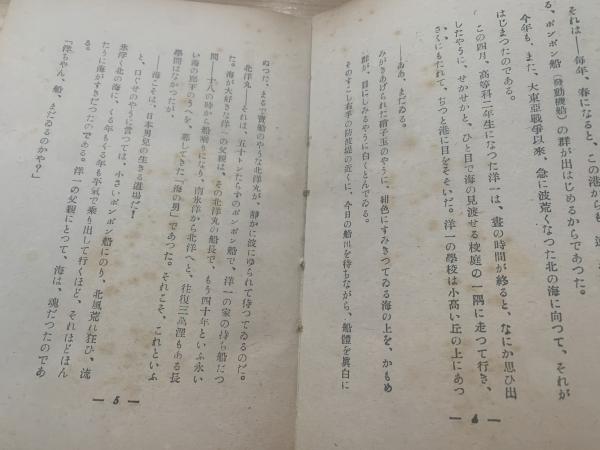 それは――毎年、春になると、この港からも
る、ポンポン船(發動機船)の群が出はじめるからであつた。
今年も、また、大東亞戰爭以來、急に波荒くなつた北の海に向つて、それが
はじまつたのである。
この四月、高等科二年生になつた洋一は、晝の時間が終ると、なにか思ひ出
したやうに、せかせかと、ひと目で海の見渡せる校庭の一隅に走つて行き、
さくにもたれて、ぢつと港に目をそそいだ。洋一の學校は小高い丘の上にあつ
――ああ、まだゐる。
みがきあげられた硝子玉のやうに、紺色にすみきつてゐる海の上を、かもめ
の群が、目にしみるやうに白くとんでゐる。
そのすこし右手の防波堤の近くに、今日の船出を待ちながら、船體を眞白に
― 4 ―
ぬつた、まるで寶船のやうな北洋丸が、靜かに波にゆられて待つてゐるのだ。
北洋丸――それは、五十トンたらずのポンポン船で、洋一の家の持ち船だつ
た。海が大好きな洋一の父親は、その北洋丸の船長で、もう四十年といふ永い
間――十八の時から船乘りになり、南氷洋から北洋へと、往復三萬浬もある長
い海の旅平のうへを、暮してきた「海の男」であつた。それこそ、これといふ
學問はなかつたが、
――海こそは、日本男兒の生きる道場だ!
と、口ぐせのやうに言つては、小さいポンポン船にのり、北風荒れ狂ひ、流
氷浮く北の海に、くる年もくる年も平氣で乘り出して行くほど、それほどほん
たうに海がすきだつたのである。洋一の父親にとつて、海は、魂だつたのであ
る。
「洋ちやん、船、まだゐるのかや?」
― 5 ―